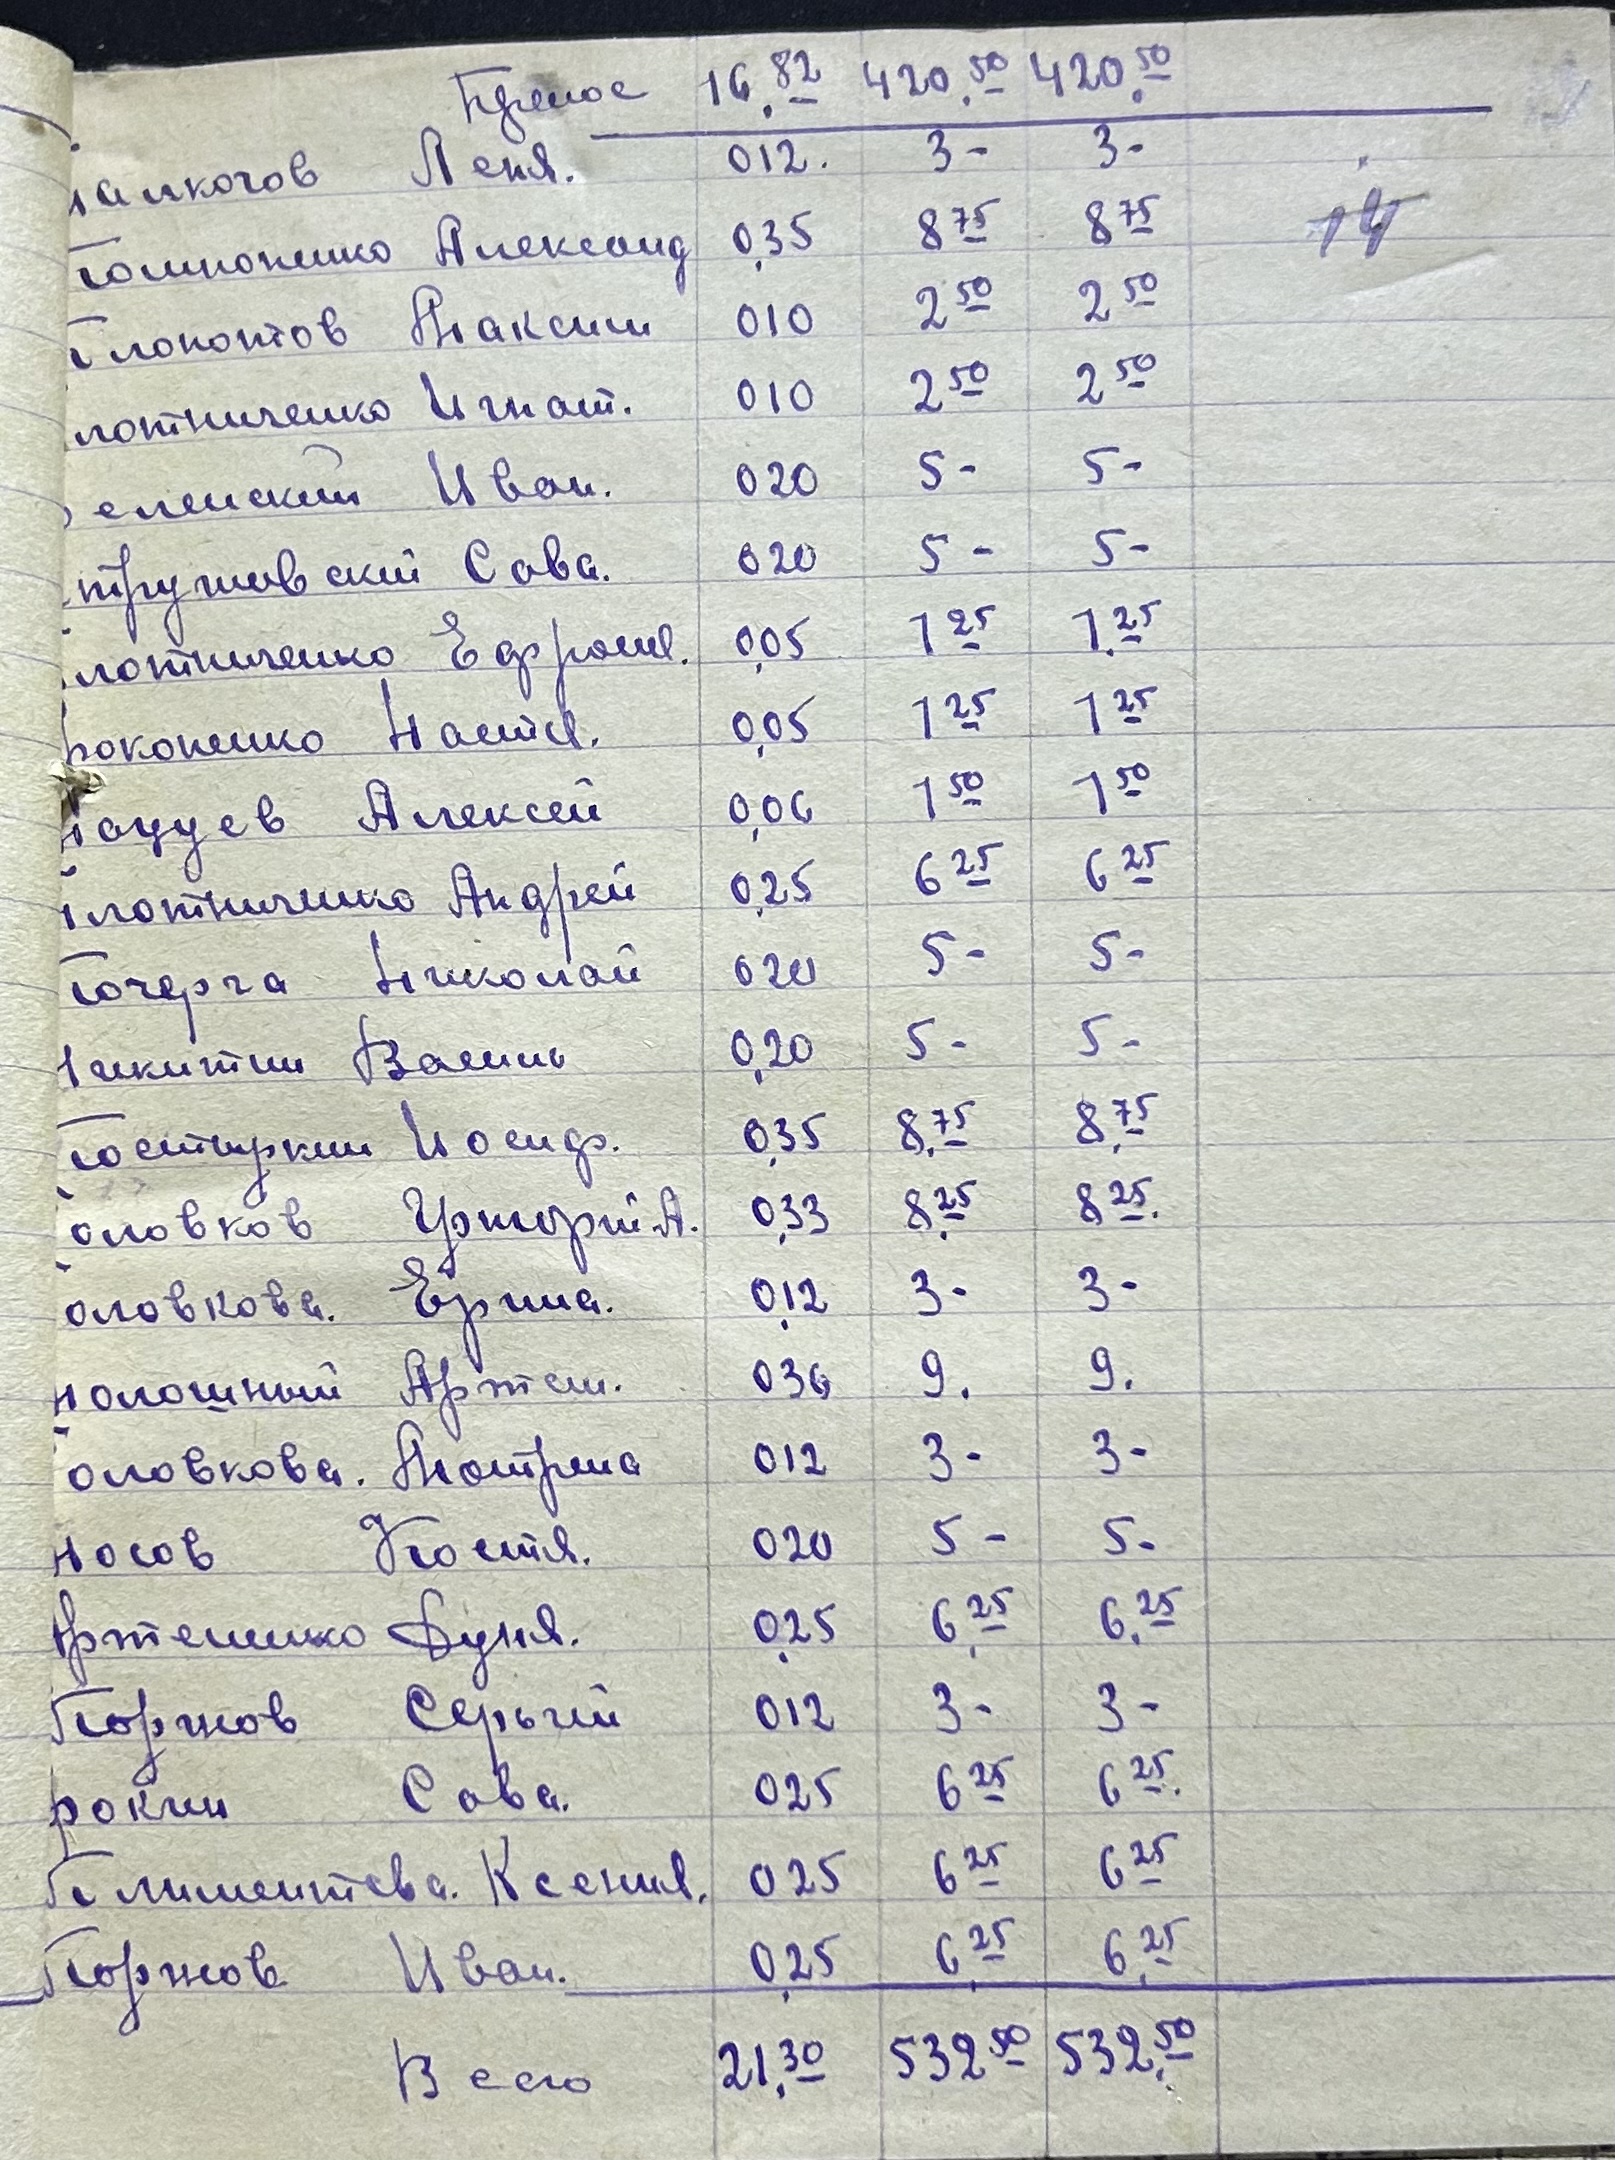 Принос 16,82 420,50 420,50
малкогов Леня. 012. 3- 3-
Компоненко Александ 0,35 8 75 8 75 14
Клопотов Максим 010 2 50 2 50
лотниченко Игнат. 010 2 50 2 50
еленский Иван. 020 5- 5-
етрушевский Сава. 020 5- 5-
лотниченко Ефросия. 0,05 1 25 1,25
рокопенко Настя. 0,05 1 25 1 25
Алексей 0,06 1 50 1 50
лотниченко Андрей 0,25 6 25 6 25
Кочерга Николай 020 5- 5-
Никитин Василь 0,20 5- 5-
Костыркин Иосиф. 0,35 8,75 8,75
оловков Григорий А. 0,33 8,25 8 25.
оловкова. Ерина. 0,12 3- 3-
Артем. 036 9. 9.
оловкова. Матрена 012 3- 3-
Носов Костя. 020 5- 5-
Артеменко Дуня. 0,25 6,25 6,25
Коржов Серьгей 012 3- 3-
рокин Сава. 025 6 25 6 25.
Климентева. Ксения. 025 6 25 6 25
Коржов Иван. 0,25 6,25 6,25
Всего 21,30 532 50 532,50